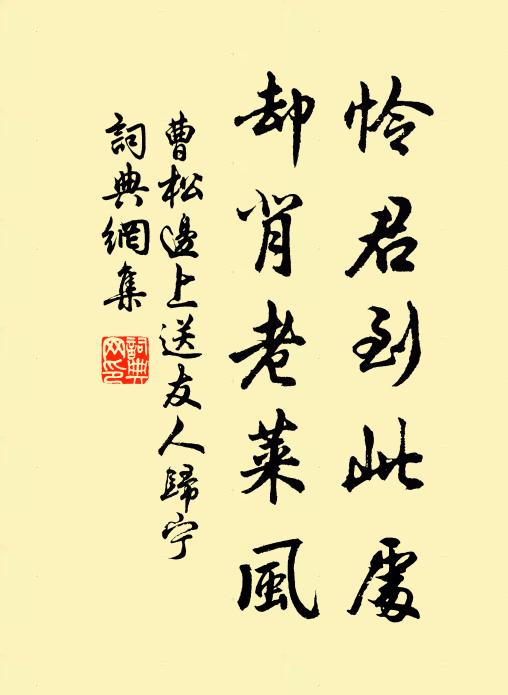 怜君到此處
却背老萊風
曹松邊上送友人歸宁
詞典網集
詞典
网印